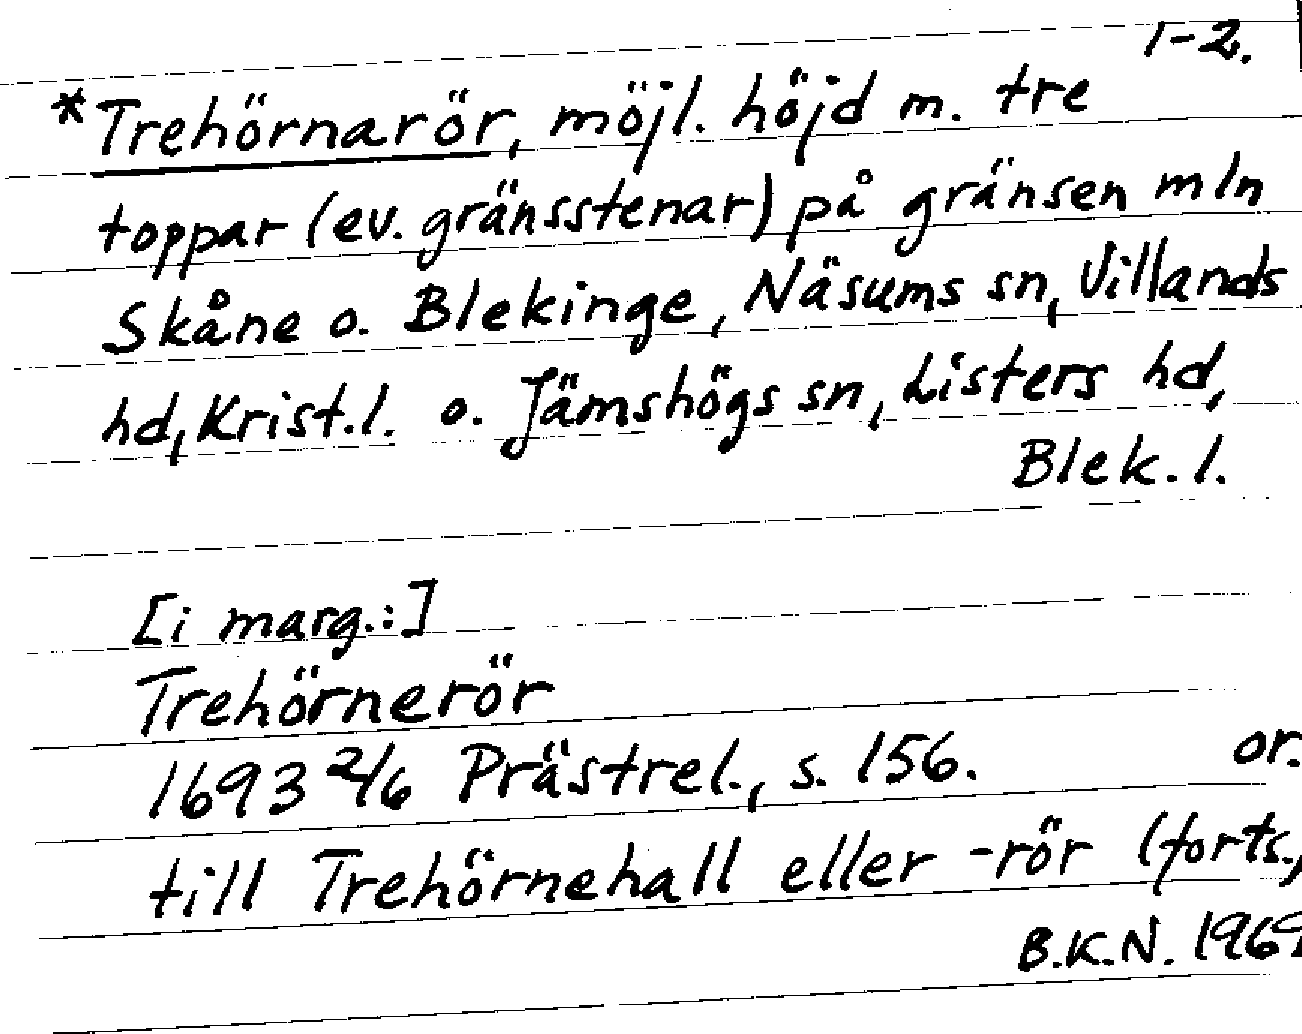 1-2.
*Trehörnarör, möjl. höjd m. tre
toppar (ev. gränsstenar) på gränsen mln
Skåne o. Blekinge, Näsums sn, Villands
hd, Krist.l. o. Jämshögs sn, Listers hd,
Blek. l.
[i marg.:]
Trehörnerör
1693 2/6 Prästrel., s. 156. or.
till Trehörnehall eller -rör (forts.)
B.K.N. 1969